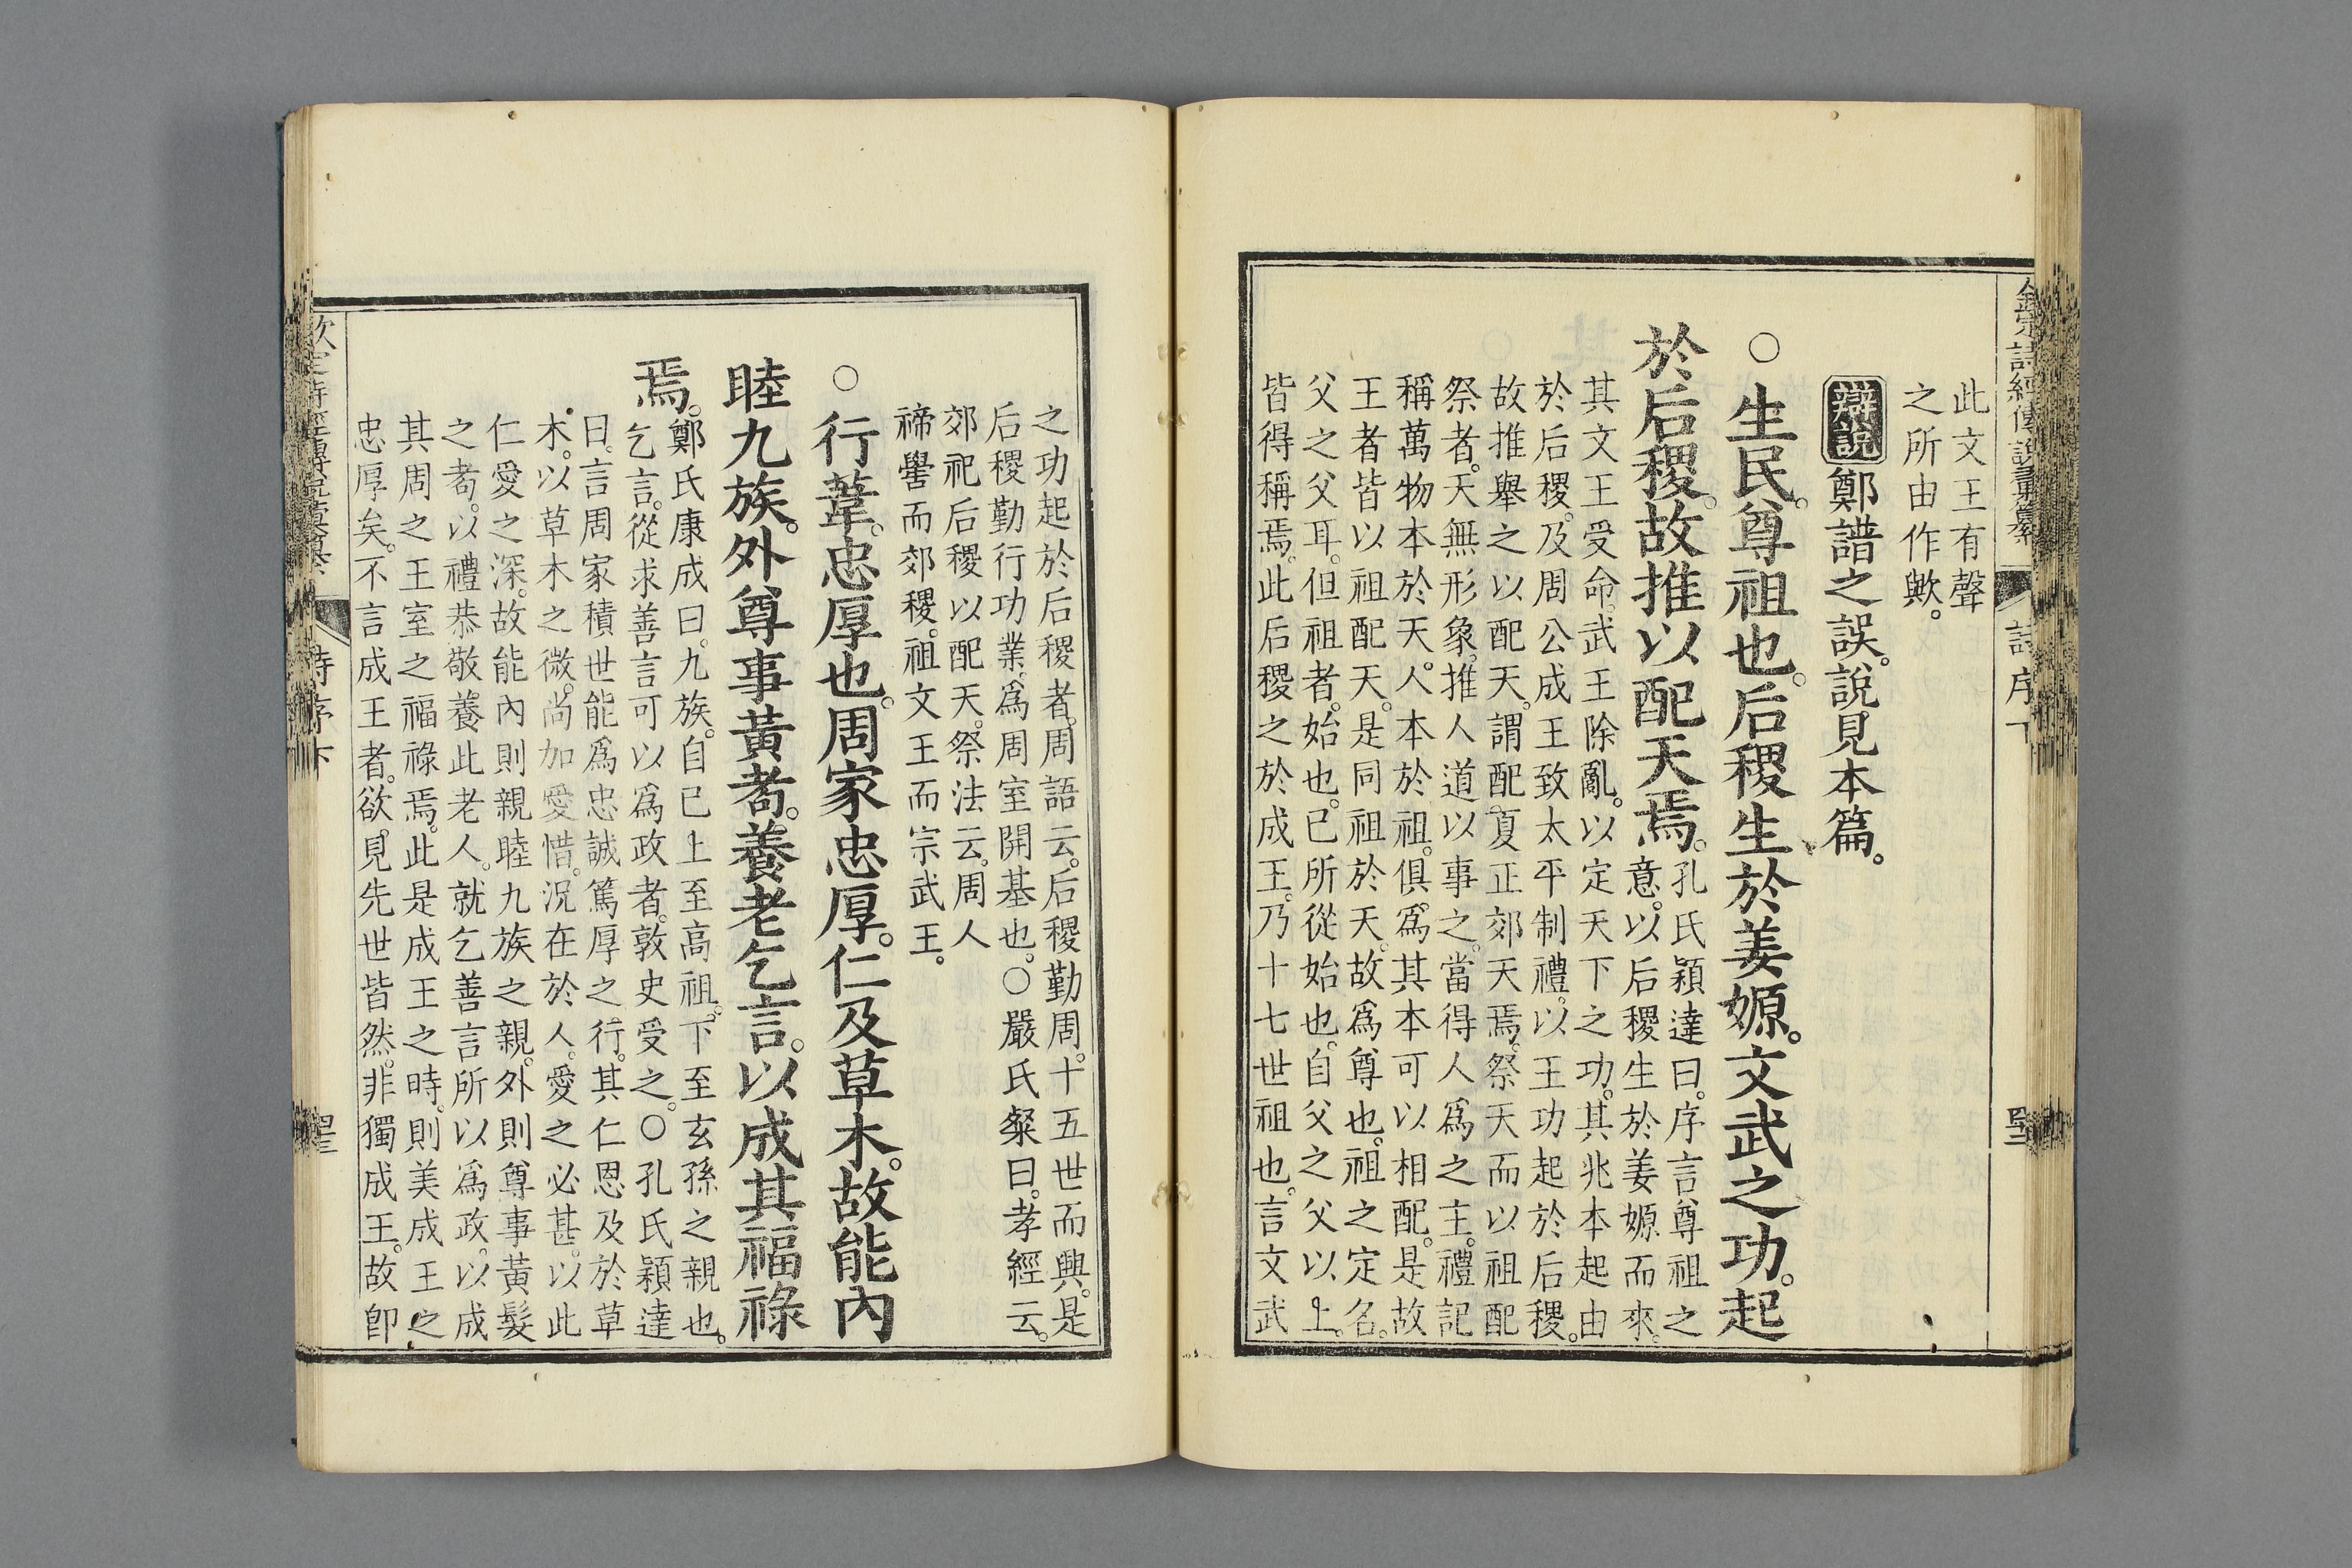 此文王有聲
之所由作歟。
辯說鄭譜之誤。說見本篇。
○生民。尊祖也。后稷生於姜嫄。文武之功。起
於后稷。故推以配天焉。
孔氏穎達曰。序言尊祖之
意。以后稷生於姜嫄而來。
其文王受命。武王除亂。以定天下之功。其兆本起由
於后稷。及周公成王致太平制禮。以王功起於后稷。
故推舉之以配天。謂配夏正郊天焉。祭天而以祖配
祭者。天無形象。推人道以事之。當得人爲之主。禮記
稱萬物本於天。人本於祖。俱爲其本可以相配。是故
王者皆以祖配天。是同祖於天。故爲尊也。祖之定名。
父之父耳。但祖者。始也。已所從始也。自父之父以上。
皆得稱焉。此后稷之於成王。乃十七世祖也。言文武
之功起於后稷者。周語云。后稷勤周。十五世而興。是
后稷勤行功業。爲周室開基也。○嚴氏粲曰。孝經云。
郊祀后稷以配天。祭法云。周人
禘嚳而郊稷。祖文王而宗武王。
○行葦。忠厚也。周家忠厚。仁及草木。故能內
睦九族。外尊事黃耇。養老乞言。以成其福祿
焉。
鄭氏康成曰。九族。自已上至高祖。下至玄孫之親也。
乞言。從求善言可以爲政者。敦史受之。○孔氏穎達
曰。言周家積世能爲忠誠篤厚之行。其仁恩及於草
木。以草木之微。尚加愛惜。況在於人。愛之必甚。以此
仁愛之深。故能內則親睦九族之親。外則尊事黃髮
之耇。以禮恭敬。養此老人。就乞善言所以爲政。以成
其周之王室之福祿焉。此是成王之時。則美成王之
忠厚矣。不言成王者。欲見先世皆然。非獨成王。故卽
詩經傳說彙纂
詩序下
欽定詩經傳說彙纂
詩序下